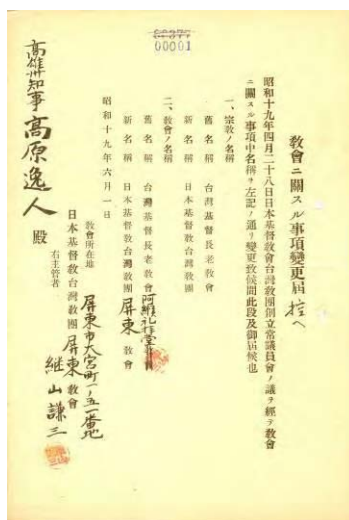 00001
教會ニ關スル事項變更届 控へ
昭和十九年四月二十八日日本基督教會台灣教團創立常議員會ノ議ヲ經テ教會
ニ關スル事項中名稱ヲ左記ノ通リ變更致候間此段及御届候也
一、宗教ノ名稱
舊名稱 台灣基督長老教會
新名稱 日本基督教台灣教團
二、教會ノ名稱
舊名稱 台灣基督長老教會 阿緱礼拝堂
新名稱 日本基督教台灣教團 屏東 教會
昭和十九年六月一日
教會所在地 屏東市大宮町一ノ五一番地
日本基督教台灣教團 屏東 教會
右主管者 継山謙三
高雄州知事 高原逸人 殿